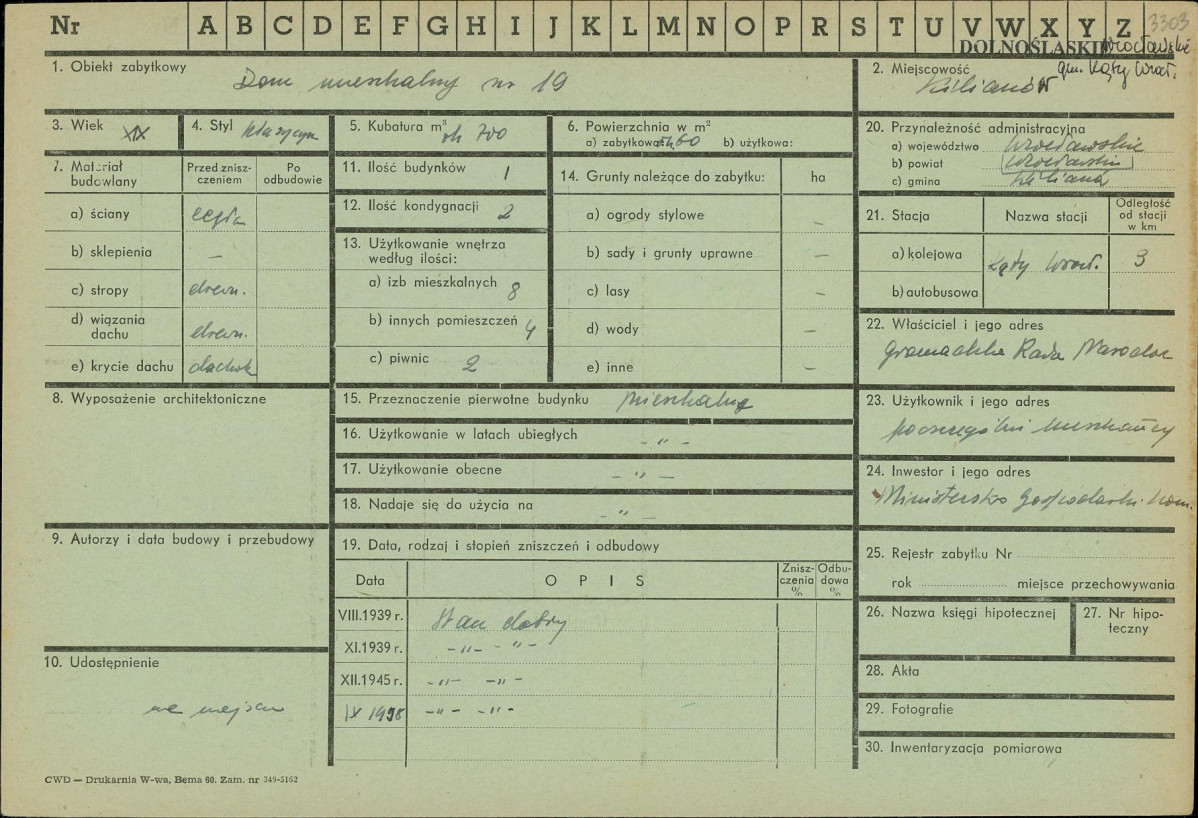 Nr A B C D E F G H I J K L M N O P R S T U V W X Y Z 3303
DOLNOŚLĄSKIE Wrocławskie
gm. Kąty Wroł.
1. Obiekt zabytkowy
Dom mieszkalny nr 19
2. Miejscowość
Kilianów
3. Wiek XIX
4. Styl klasycyzm
5. Kubatura m³ ok 700
6. Powierzchnia w m²
a) zabytkowa: ok. 60 b) użytkowa:
7. Materiał budowlany
Przed zniszczeniem
Po odbudowie
a) ściany cegła
b) sklepienia —
c) stropy drewn.
d) wiązania dachu drewn.
e) krycie dachu dachówk
8. Wyposażenie architektoniczne
9. Autorzy i data budowy i przebudowy
10. Udostępnienie
na miejscu
11. Ilość budynków 1
12. Ilość kondygnacji 2
13. Użytkowanie wnętrza
według ilości:
a) izb mieszkalnych 8
b) innych pomieszczeń 4
c) piwnic 2
14. Grunty należące do zabytku: ha
a) ogrody stylowe —
b) sady i grunty uprawne —
c) lasy —
d) wody —
e) inne —
15. Przeznaczenie pierwotne budynku mieszkalny
16. Użytkowanie w latach ubiegłych - " -
17. Użytkowanie obecne - " -
18. Nadaje się do użycia na - " -
19. Data, rodzaj i stopień zniszczeń i odbudowy
Data OPIS Zniszczenia % Odbudowa %
VIII.1939 r. Stan dobry
XI.1939 r. - " - - " -
XII.1945 r. - " - - " -
IX 1958 - " - - " -
20. Przynależność administracyjna
a) województwo wrocławskie
b) powiat wrocławski
c) gmina Kilianów
21. Stacja Nazwa stacji Odległość od stacji w km
a) kolejowa Kąty Wroł. 3
b) autobusowa
22. Właściciel i jego adres
Gromadzka Rada Narodow
23. Użytkownik i jego adres
poszczególni mieszkańcy
24. Inwestor i jego adres
Ministerstwo Gospodarki Kom.
25. Rejestr zabytku Nr
rok miejsce przechowywania
26. Nazwa księgi hipotecznej
27. Nr hipoteczny
28. Akta
29. Fotografie
30. Inwentaryzacja pomiarowa
CWD — Drukarnia W-wa, Bema 60. Zam. nr 349-5162